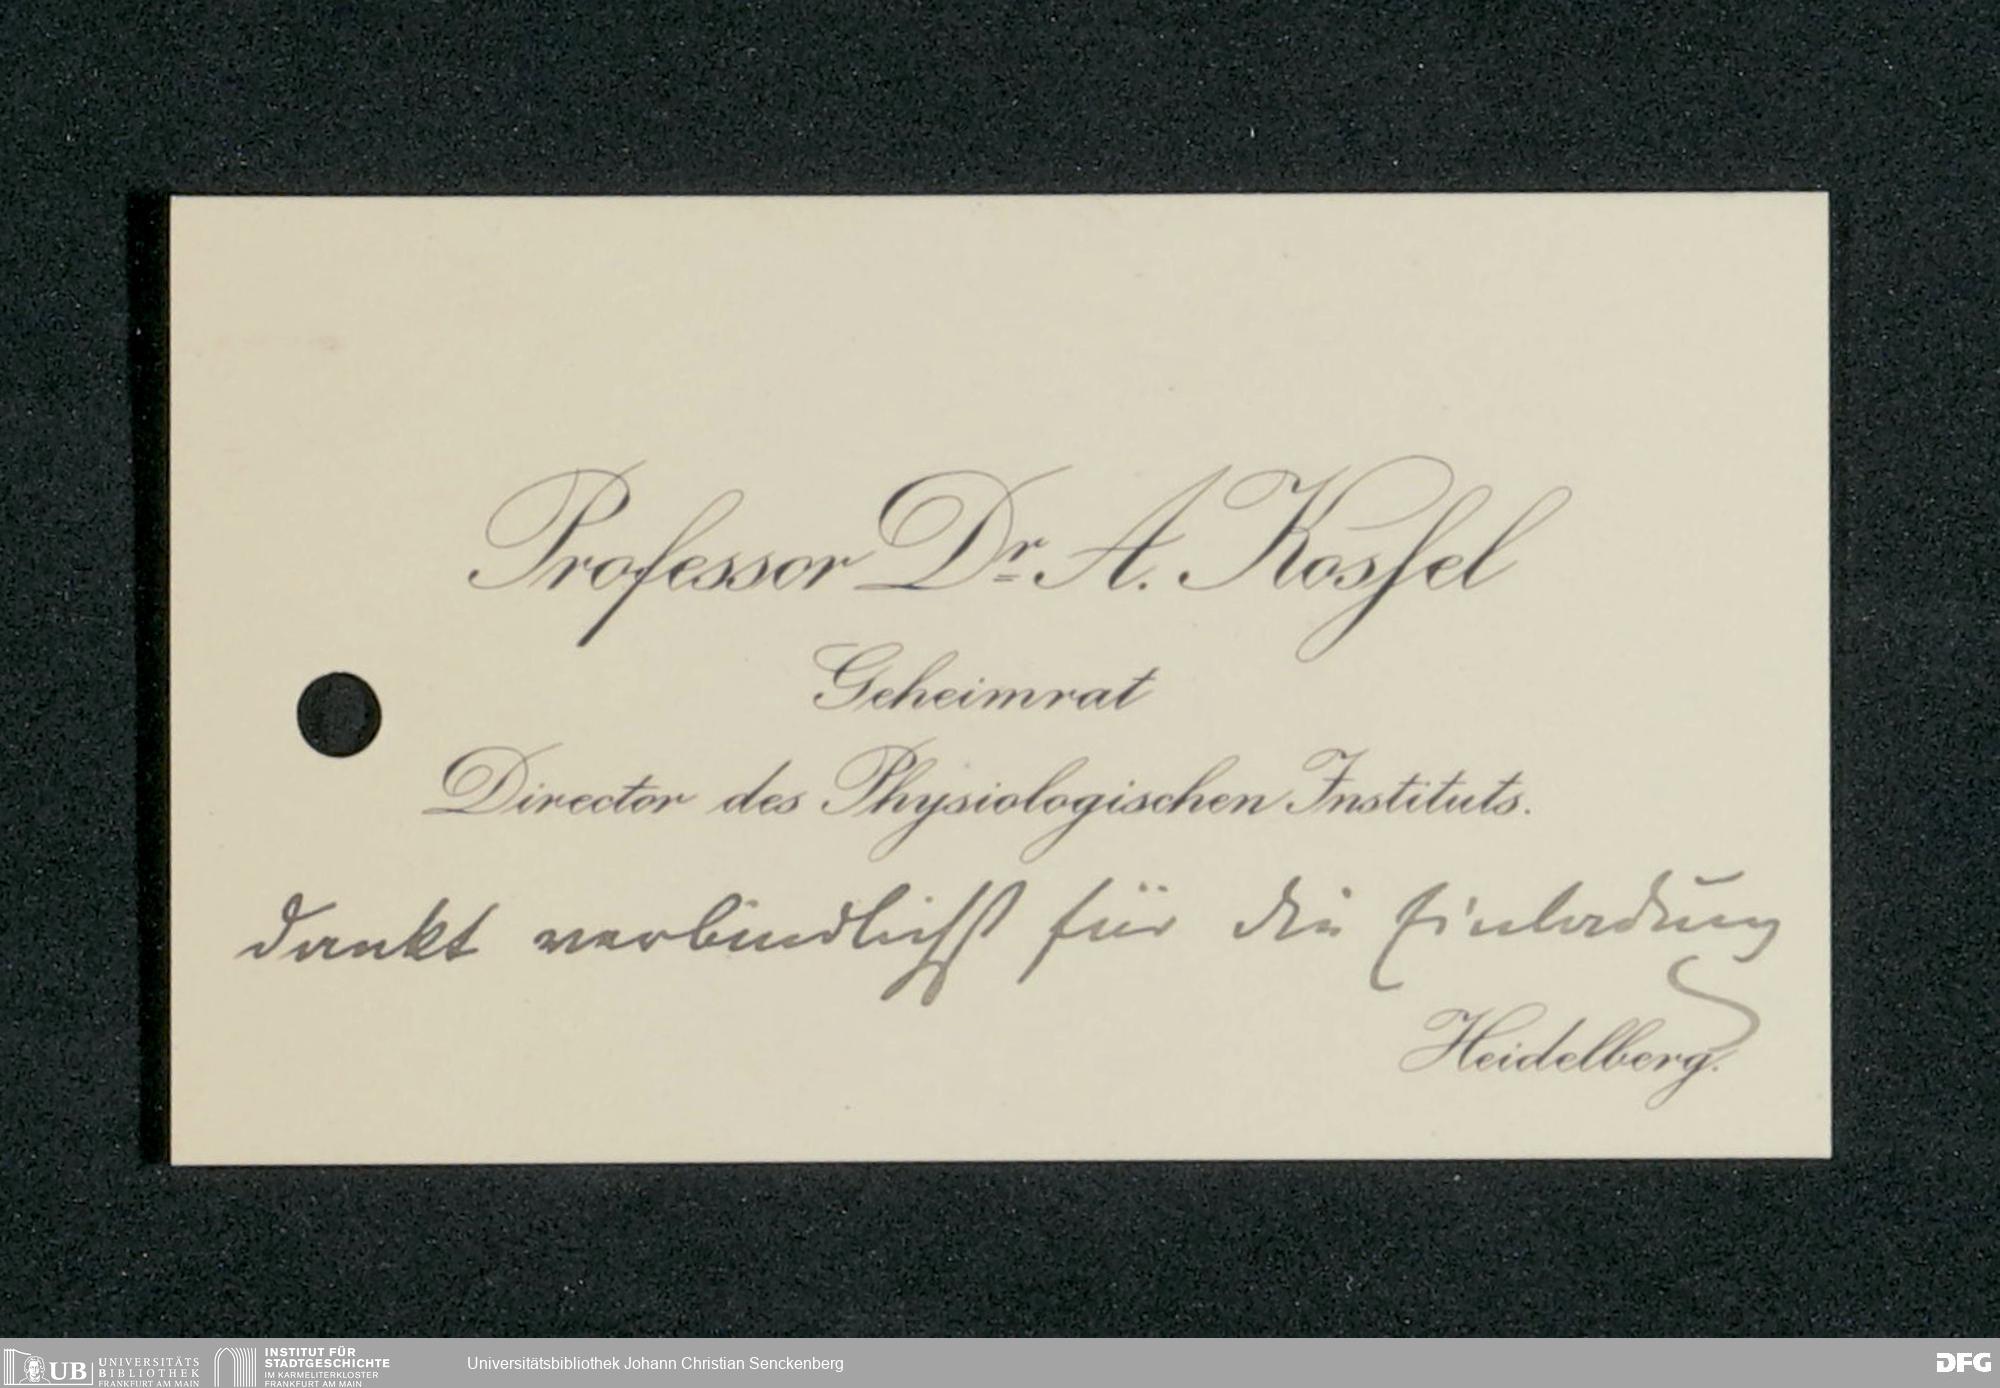 Professor Dr. A. Kossel
Geheimrat
Director des Physiologischen Instituts.
dankt verbindlichst für die Einladung
Heidelberg.
UB UNIVERSITÄTS
BIBLIOTHEK
FRANKFURT AM MAIN
INSTITUT FÜR
STADTGESCHICHTE
IM KARMELITERKLOSTER
FRANKFURT AM MAIN
Universitätsbibliothek Johann Christian Senckenberg
DFG